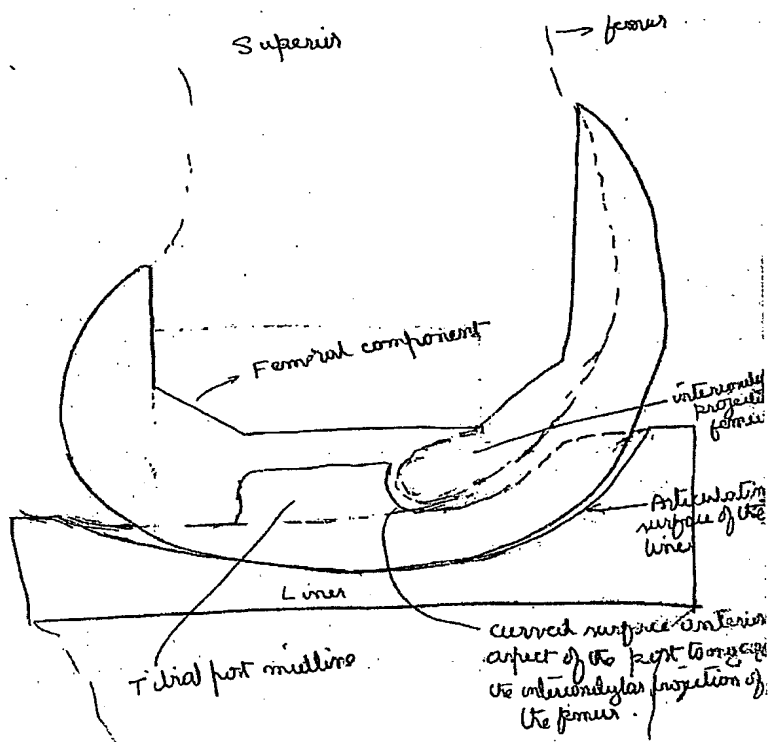 Superior
femur
Femoral component
femur
Articulatin
surface of the
liner
Liner
Tibial post midline
curved surface anterior
aspect of the post to
the intercondylar projection of
the femur.